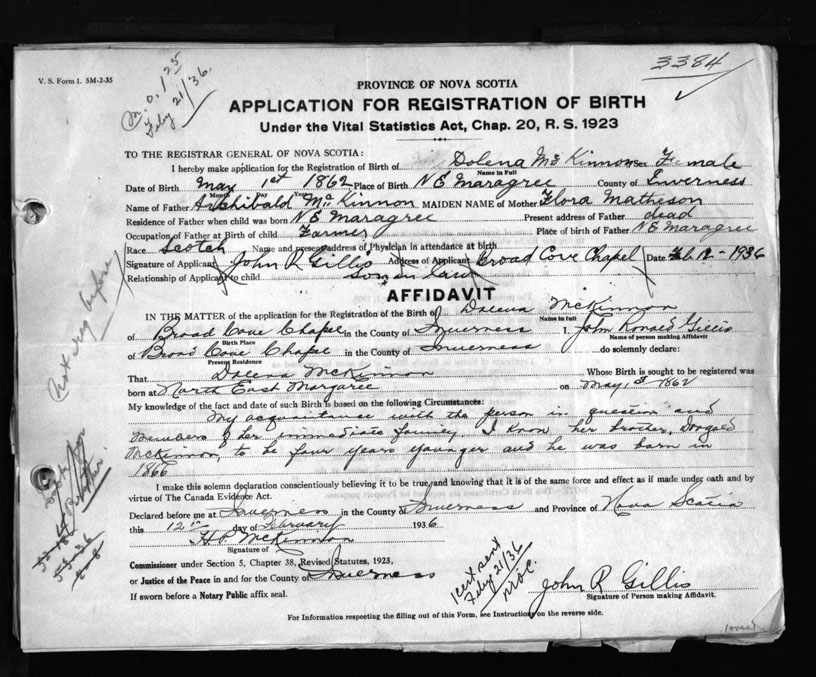 V. S. Form 1. 5M-2-35
M.O. 1.25
Feby 21/36.
3384
PROVINCE OF NOVA SCOTIA
APPLICATION FOR REGISTRATION OF BIRTH
Under the Vital Statistics Act, Chap. 20, R. S. 1923
TO THE REGISTRAR GENERAL OF NOVA SCOTIA:
I hereby make application for the Registration of Birth of Dolena McKinnon Sex Female
Name in Full
Date of Birth May 1st 1862 Place of Birth N E Maragree County of Inverness
Month
Name of Father Archibald McKinnon MAIDEN NAME of Mother Flora Matheson
Residence of Father when child was born N E Maragree Present address of Father dead
Occupation of Father at Birth of child Farmer Place of birth of Father N E Maragree
Race Scotch Name and present address of Physician in attendance at birth
Signature of Applicant John R Gillis Address of Applicant Broad Cove Chapel Date Feb 12 - 1936
Relationship of Applicant to child son in law
Not reg before
AFFIDAVIT
IN THE MATTER of the application for the Registration of the Birth of Dolena McKinnon
Name in full
of Broad Cove Chapel in the County of Inverness I, John Ronald Gillis
Birth Place Name of person making Affidavit
of Broad Cove Chapel in the County of Inverness do solemnly declare:
Present Residence
That Dolena McKinnon Whose Birth is sought to be registered was
born at North East Margaree on May, 1st 1862
My knowledge of the fact and date of such Birth is based on the following Circumstances:
My acquaintance with the person in question and
members of her immediate family. I know her brother,
McKinnon, to be four years younger and he was born in
1866
I make this solemn declaration conscientiously believing it to be true and knowing that it is of the same force and effect as if made under oath and by
virtue of The Canada Evidence Act.
Declared before me at Inverness in the County of Inverness and Province of Nova Scotia
this 12th day of February 1936
H.P. McKinnon
Signature of
Commissioner under Section 5, Chapter 38, Revised Statutes, 1923,
or Justice of the Peace in and for the County of Inverness
If sworn before a Notary Public affix seal.
1 cert sent
Feby 21/36
M.O.C.
John R Gillis
Signature of Person making Affidavit.
For Information respecting the filling out of this Form, see Instructions on the reverse side.
(over)